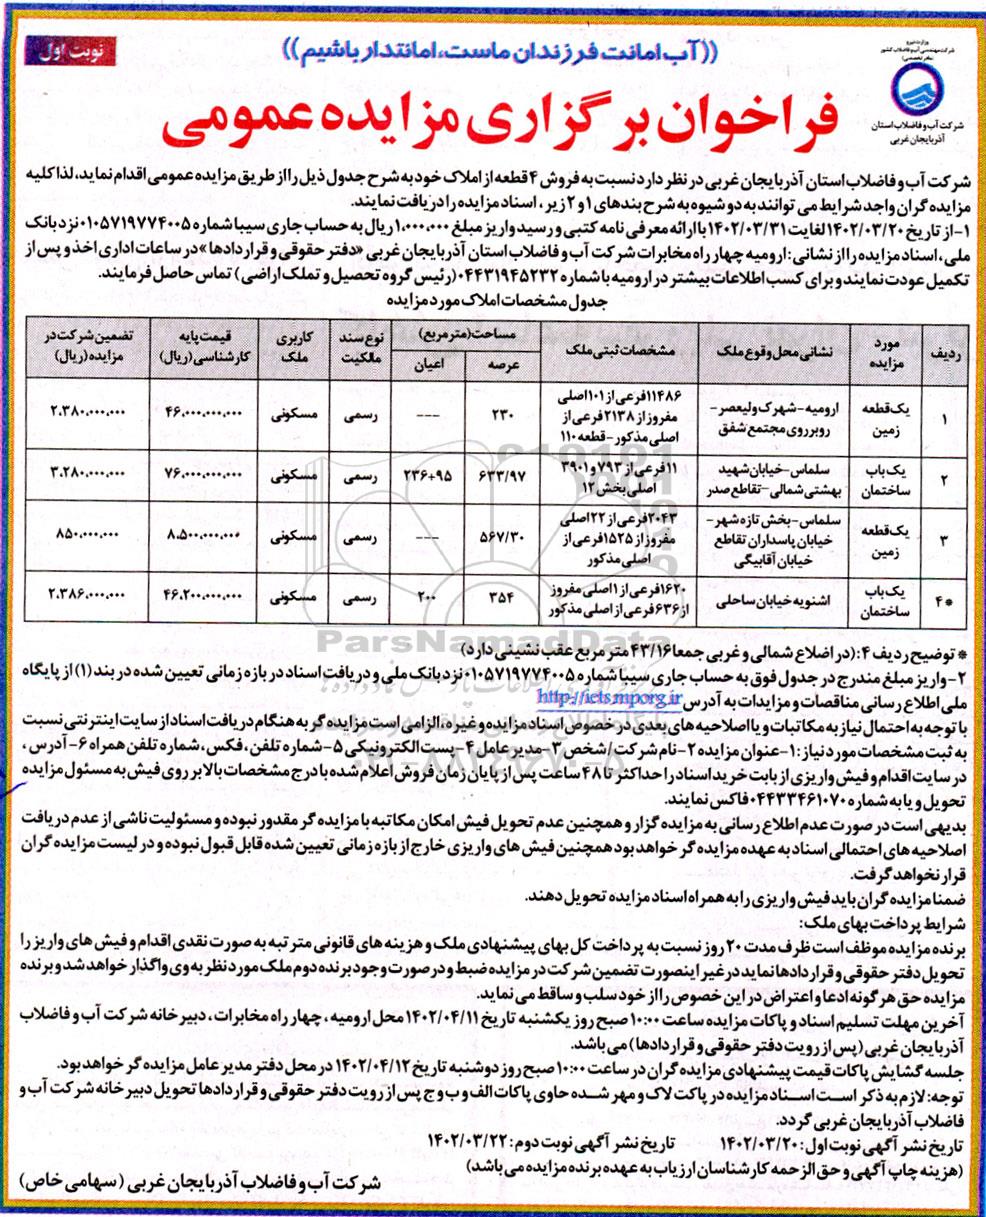 وزارت نیرو
شرکت مهندسی آب و فاضلاب کشور
(مادر تخصصی)
شرکت آب و فاضلاب استان
آذربایجان غربی
((آب امانت فرزندان ماست، امانتدار باشیم))
نوبت اول
فراخوان برگزاری مزایده عمومی
شرکت آب و فاضلاب استان آذربایجان غربی در نظر دارد نسبت به فروش ۴ قطعه از املاک خود به شرح جدول ذیل را از طریق مزایده عمومی اقدام نماید، لذا کلیه
مزایده گران واجد شرایط می توانند به دو شیوه به شرح بندهای ۱ و ۲ زیر، اسناد مزایده را دریافت نمایند.
۱- از تاریخ ۱۴۰۲/۰۳/۲۰ لغایت ۱۴۰۲/۰۳/۳۱ با ارائه معرفی نامه کتبی و رسید واریز مبلغ ۱,۰۰۰,۰۰۰ ریال به حساب جاری سیبا شماره ۰۱۰۵۷۱۹۷۷۴۰۰۵ نزد بانک
ملی، اسناد مزایده را از نشانی: ارومیه چهار راه مخابرات شرکت آب و فاضلاب استان آذربایجان غربی «دفتر حقوقی و قراردادها» در ساعات اداری اخذ و پس از
تکمیل عودت نمایند و برای کسب اطلاعات بیشتر در ارومیه با شماره ۰۴۴۳۱۹۴۵۲۳۲ (رئیس گروه تحصیل و تملک اراضی) تماس حاصل فرمایند.
جدول مشخصات املاک مورد مزایده
ردیف | مورد مزایده | نشانی محل وقوع ملک | مشخصات ثبتی ملک | مساحت (متر مربع) عرصه | اعیان | نوع سند مالکیت | کاربری ملک | قیمت پایه کارشناسی (ریال) | تضمین شرکت در مزایده (ریال)
۱ | یک قطعه زمین | ارومیه - شهرک ولیعصر - روبرروی مجتمع شفق | ۱۱۴۸۶ فرعی از ۱۰۱ اصلی مفروز از ۲۱۳۸ فرعی از اصلی مذکور - قطعه ۱۱۰ | ۲۳۰ | --- | رسمی | مسکونی | ۴۶,۰۰۰,۰۰۰,۰۰۰ | ۲,۳۸۰,۰۰۰,۰۰۰
۲ | یک باب ساختمان | سلماس - خیابان شهید بهشتی شمالی - تقاطع صدر | ۱۱ فرعی از ۷۹۳ و ۳۹۰۱ اصلی بخش ۱۲ | ۶۳۳/۹۷ | ۲۳۶+۹۵ | رسمی | مسکونی | ۷۶,۰۰۰,۰۰۰,۰۰۰ | ۳,۲۸۰,۰۰۰,۰۰۰
۳ | یک قطعه زمین | سلماس - بخش تازه شهر - خیابان پاسداران تقاطع خیابان آقابیگی | ۲۰۴۳ فرعی از ۲۲ اصلی مفروز از ۱۵۲۵ فرعی از اصلی مذکور | ۵۶۷/۳۰ | --- | رسمی | مسکونی | ۸,۵۰۰,۰۰۰,۰۰۰ | ۸۵۰,۰۰۰,۰۰۰
*۴ | یک باب ساختمان | اشنویه خیابان ساحلی | ۱۶۲۰ فرعی از ۱ اصلی مفروز از ۶۳۶ فرعی از اصلی مذکور | ۳۵۴ | ۲۰۰ | رسمی | مسکونی | ۴۶,۲۰۰,۰۰۰,۰۰۰ | ۲,۳۸۶,۰۰۰,۰۰۰
ParsNamadData
۰۲۱-۸۸۳۴۹۶۷۰-۵
* توضیح ردیف ۴: (در اضلاع شمالی و غربی جمعا ۴۳/۱۶ متر مربع عقب نشینی دارد)
۲- واریز مبلغ مندرج در جدول فوق به حساب جاری سیبا شماره ۰۱۰۵۷۱۹۷۷۴۰۰۵ نزد بانک ملی و دریافت اسناد در بازه زمانی تعیین شده در بند (۱) از پایگاه
ملی اطلاع رسانی مناقصات و مزایدات به آدرس http://iets.mporg.ir
با توجه به احتمال نیاز به مکاتبات و یا اصلاحیه های بعدی در خصوص اسناد مزایده و غیره، الزامی است مزایده گر به هنگام دریافت اسناد از سایت اینترنتی نسبت
به ثبت مشخصات مورد نیاز: ۱- عنوان مزایده ۲- نام شرکت/شخص ۳- مدیر عامل ۴- پست الکترونیکی ۵- شماره تلفن، فکس، شماره تلفن همراه ۶- آدرس،
در سایت اقدام و فیش واریزی از بابت خرید اسناد را حداکثر تا ۴۸ ساعت پس از پایان زمان فروش اعلام شده با درج مشخصات بالا بر روی فیش به مسئول مزایده
تحویل و یا به شماره ۰۴۴۳۳۴۶۱۰۷۰ فاکس نمایند.
بدیهی است در صورت عدم اطلاع رسانی به مزایده گزار و همچنین عدم تحویل فیش امکان مکاتبه با مزایده گر مقدور نبوده و مسئولیت ناشی از عدم دریافت
اصلاحیه های احتمالی اسناد به عهده مزایده گر خواهد بود همچنین فیش های واریزی خارج از بازه زمانی تعیین شده قابل قبول نبوده و در لیست مزایده گران
قرار نخواهد گرفت.
ضمنا مزایده گران باید فیش واریزی را به همراه اسناد مزایده تحویل دهند.
شرایط پرداخت بهای ملک:
برنده مزایده موظف است ظرف مدت ۲۰ روز نسبت به پرداخت کل بهای پیشنهادی ملک و هزینه های قانونی مترتبه به صورت نقدی اقدام و فیش های واریز را
تحویل دفتر حقوقی و قراردادها نماید در غیر اینصورت تضمین شرکت در مزایده ضبط و در صورت وجود برنده دوم ملک مورد نظر به وی واگذار خواهد شد و برنده
مزایده حق هر گونه ادعا و اعتراض در این خصوص را از خود سلب و ساقط می نماید.
آخرین مهلت تسلیم اسناد و پاکات مزایده ساعت ۱۰:۰۰ صبح روز یکشنبه تاریخ ۱۴۰۲/۰۴/۱۱ محل ارومیه، چهار راه مخابرات، دبیرخانه شرکت آب و فاضلاب
آذربایجان غربی (پس از رویت دفتر حقوقی و قراردادها) می باشد.
جلسه گشایش پاکات قیمت پیشنهادی مزایده گران در ساعت ۱۰:۰۰ صبح روز دوشنبه تاریخ ۱۴۰۲/۰۴/۱۲ در محل دفتر مدیر عامل مزایده گر خواهد بود.
توجه: لازم به ذکر است اسناد مزایده در پاکت لاک و مهر شده حاوی پاکات الف و ب و ج پس از رویت دفتر حقوقی و قراردادها تحویل دبیرخانه شرکت آب و
فاضلاب آذربایجان غربی گردد.
تاریخ نشر آگهی نوبت اول: ۱۴۰۲/۰۳/۲۰ تاریخ نشر آگهی نوبت دوم: ۱۴۰۲/۰۳/۲۲
(هزینه چاپ آگهی و حق الزحمه کارشناسان ارزیاب به عهده برنده مزایده می باشد)
شرکت آب و فاضلاب آذربایجان غربی (سهامی خاص)